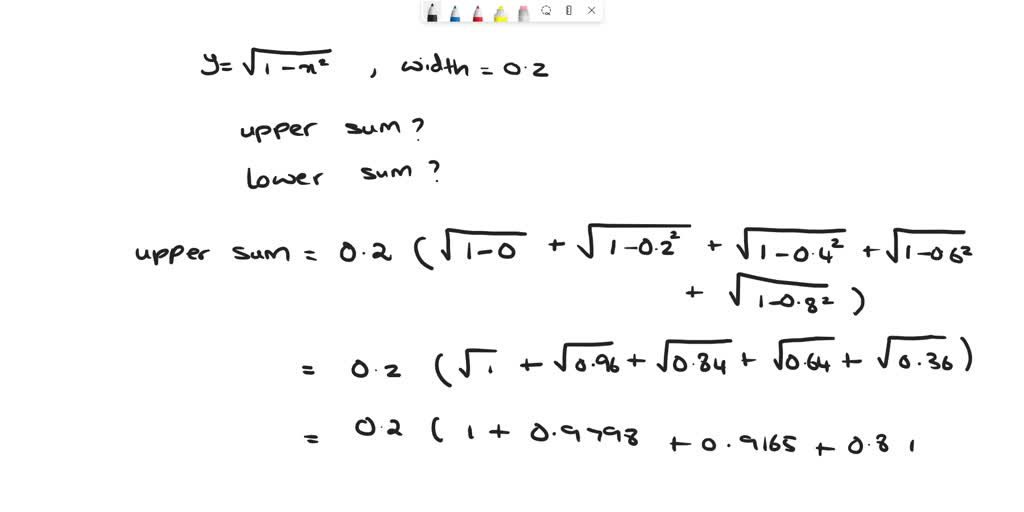 y = √(1 - x²) , width = 0.2
upper sum ?
lower sum ?
upper sum = 0.2 ( √(1-0) + √(1-0.2²) + √(1-0.4²) + √(1-0.6²)
+ √(1-0.8²) )
= 0.2 ( √1 + √0.96 + √0.84 + √0.64 + √0.36 )
= 0.2 ( 1 + 0.9798 + 0.9165 + 0.8